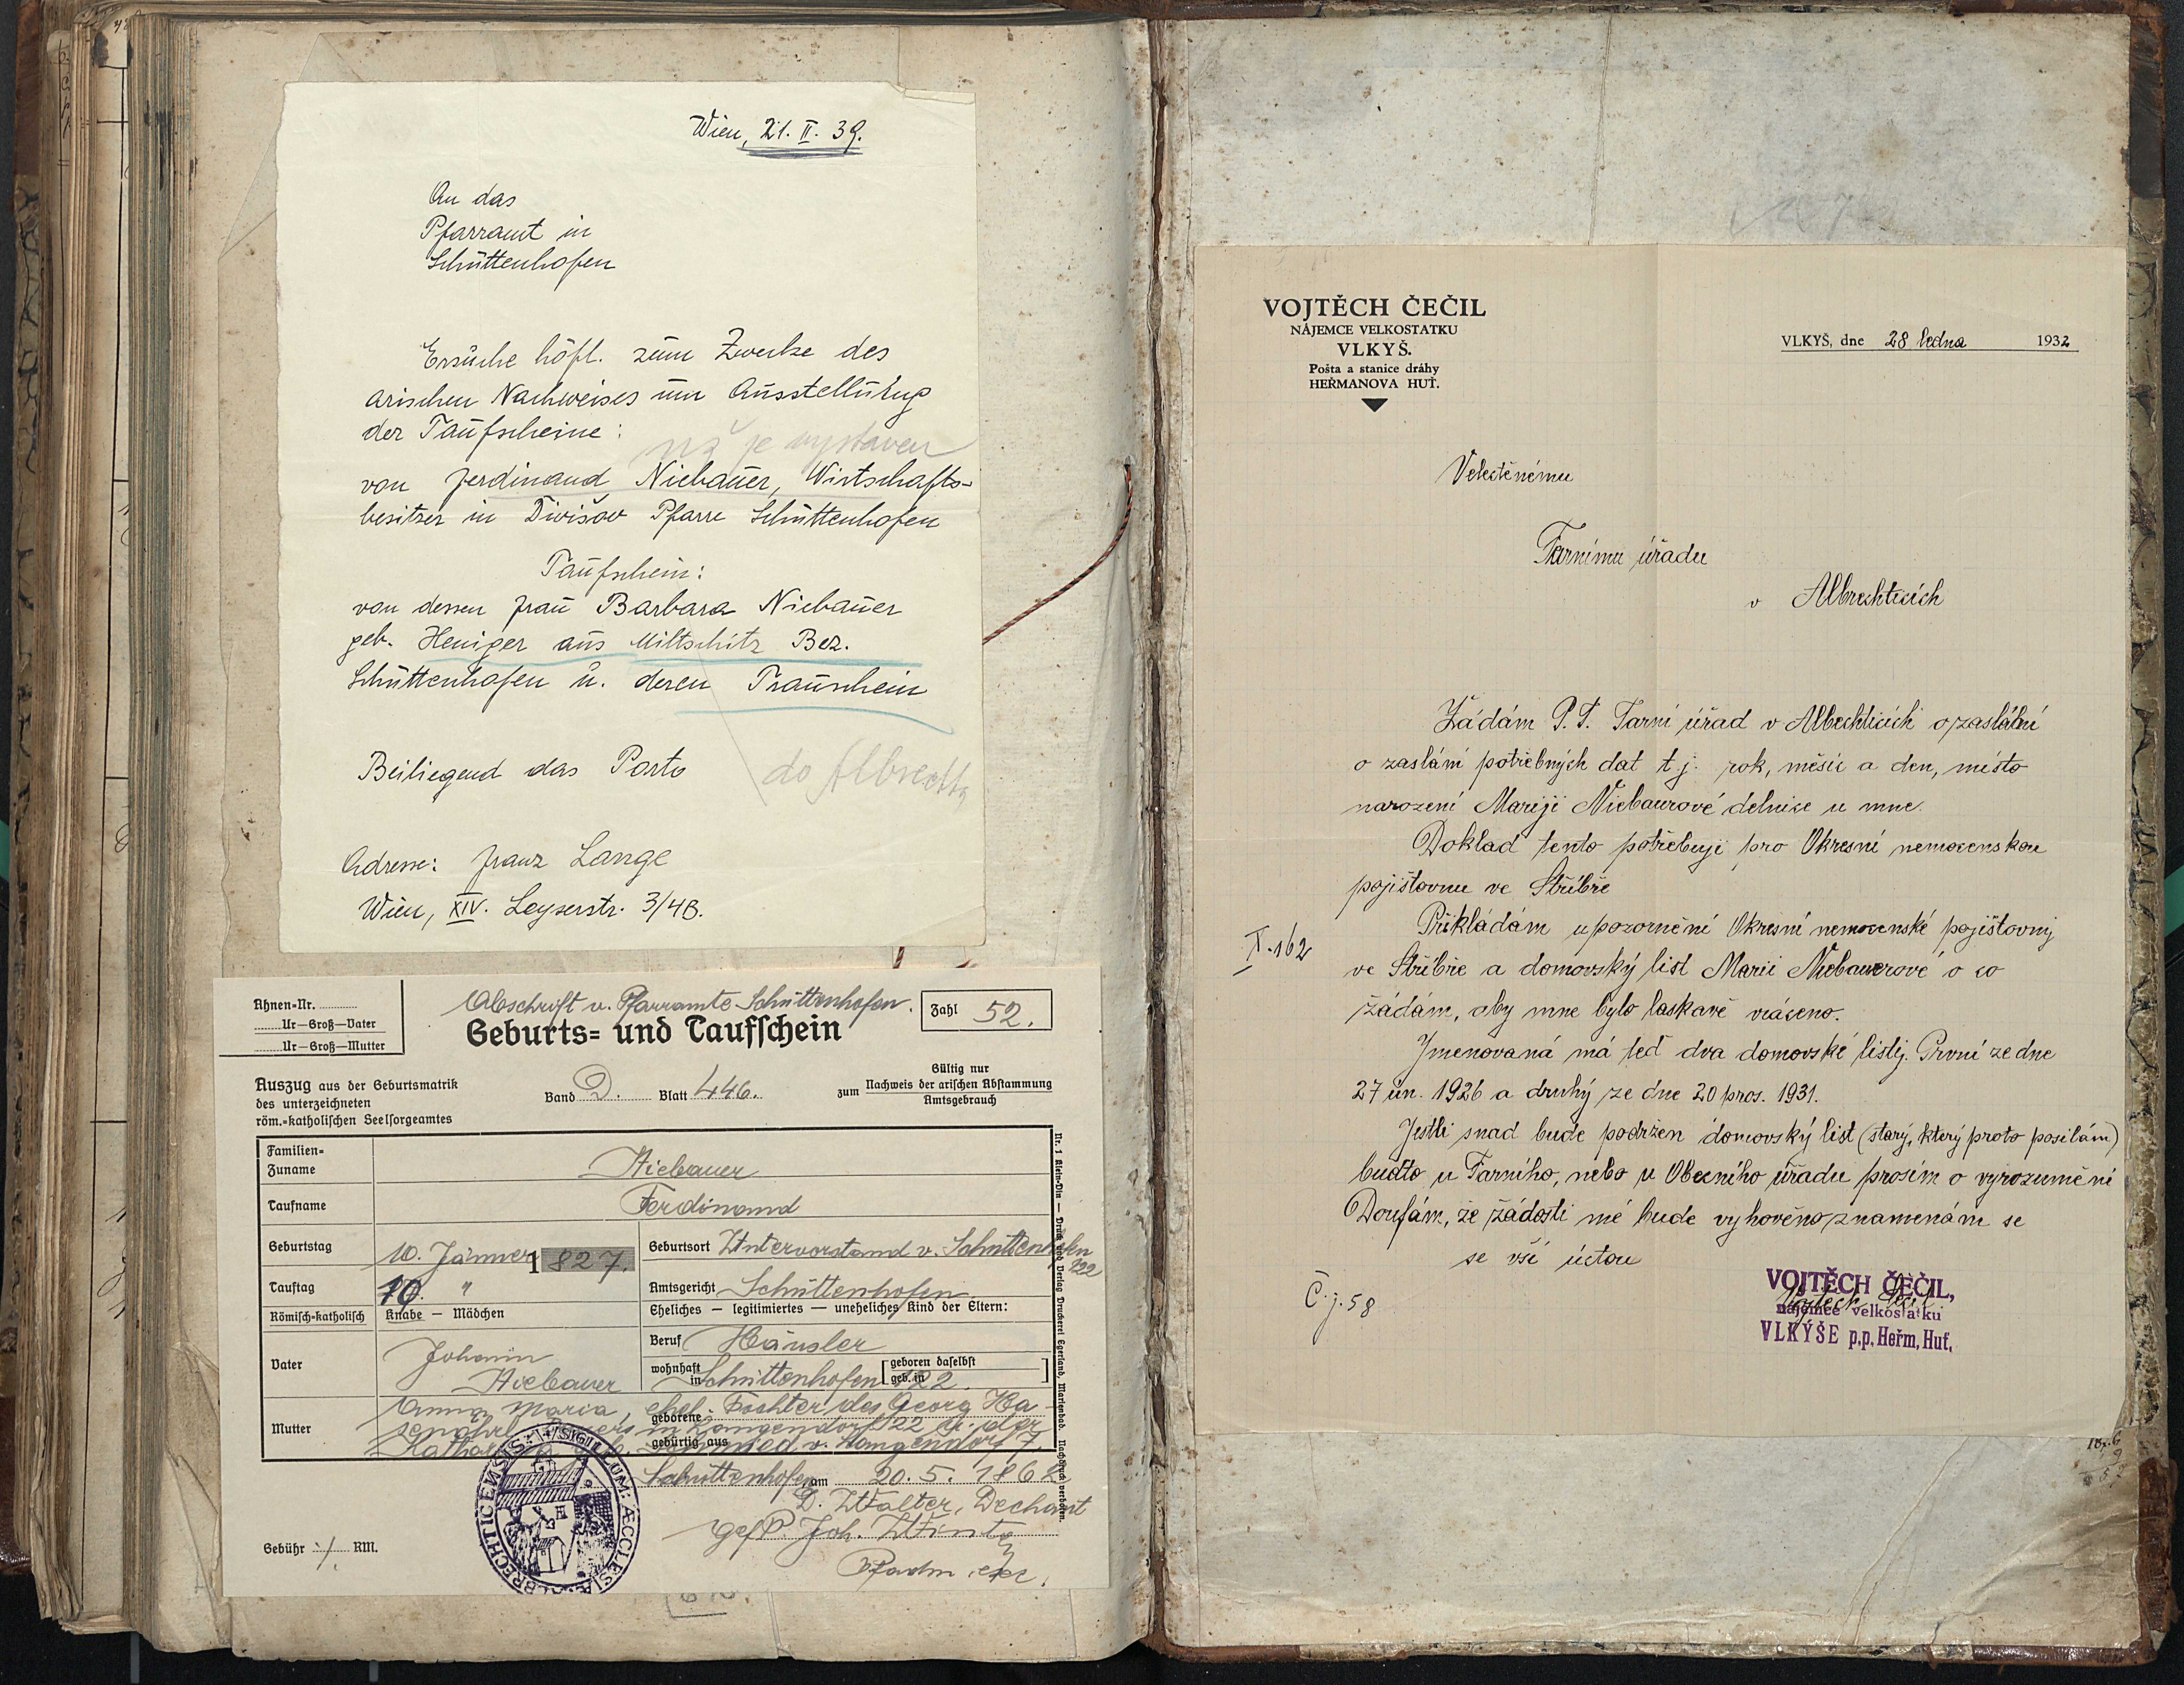 Wien, 21. II. 39.
An das
Pfarramt in
Schüttenhofen
Ersuche höfl. zum Zwecke des
arischen Nachweises um Ausstellung
der Taufscheine:
již je vystaven
von Ferdinand Niebauer, Wirtschafts-
besitzer in Divišov Pfarre Schüttenhofen
Taufschein:
von dessen Frau Barbara Niebauer
geb. Heniger aus Miltschitz Bez.
Schüttenhofen u. deren Trauschein
Beiliegend das Porto
do Albrecht
Adresse: Franz Lange
Wien, XIV. Leyserstr. 3/4B.
Ahnen-Nr.
Ur-Groß-Vater
Ur-Groß-Mutter
Abschrift v. Pfarramte Schüttenhofen.
Geburts- und Taufschein
Zahl 52.
Auszug aus der Geburtsmatrik
des unterzeichneten
röm.-katholischen Seelsorgeamtes
Band D. Blatt 446.
Gültig nur
zum Nachweis der arischen Abstammung
Amtsgebrauch
Familien-
Zuname Niebauer
Taufname Ferdinand
Geburtstag 10. Jänner 1827.
Geburtsort Untervorstand v. Schüttenhofen
122
Tauftag 10. "
Amtsgericht Schüttenhofen
Römisch-katholisch Knabe — Mädchen
Eheliches — legitimiertes — uneheliches Kind der Eltern:
Vater Johann
Niebauer
Beruf Häusler
wohnhaft in Schüttenhofen 122.
geboren daselbst
geb. in
Mutter Anna Maria, ehel. Tochter des Georg
geborene
in Langendorf 22 u. der
gebürtig aus
v. Langendorf 7.
Schüttenhofen am 20. 5. 1862
D. Walter, Dechant
Joh.
Gebühr ·/. RM.
SIGILLUM: ÆCCLESIÆ ALBRECHTICENSIS:
Nr. 1 Klein-Din — Druck und Verlag Druckerei Egerland, Marienbad. Nachdruck verboten.
VOJTĚCH ČEČIL
NÁJEMCE VELKOSTATKU
VLKYŠ.
Pošta a stanice dráhy
HEŘMANOVA HUŤ.
VLKYŠ, dne 28 ledna 1932
Velectěnému
Farnímu úřadu
v Albrechticích
Žádám P. T. Farní úřad v Albrechticích o zaslální
o zaslání potřebných dat t.j. rok, měsíc a den, místo
narození Mariji Niebaurové dělnice u mne.
Doklad tento potřebuji pro Okresní nemocenskou
pojišťovnu ve Stříbře
Přikládám upozornění Okresní nemocenské pojišťovny
X. 162
ve Stříbře a domovský list Marii Niebauerové o co
žádám, aby mne bylo laskavě vráceno.
Jmenovaná má teď dva domovské listy. První ze dne
27 ún. 1926 a druhý ze dne 20 pros. 1931.
Jestli snad bude podržen domovský list (starý, který proto posílám)
buďto u Farního, nebo u Obecního úřadu prosím o vyrozumění
Doufám, že žádosti mé bude vyhověno znamenám se
se vší úctou
Č. j. 58
VOJTĚCH ČEČIL,
nájemce velkostatku
VLKÝŠE p.p. Heřm. Huť.
Vojtěch Čečil